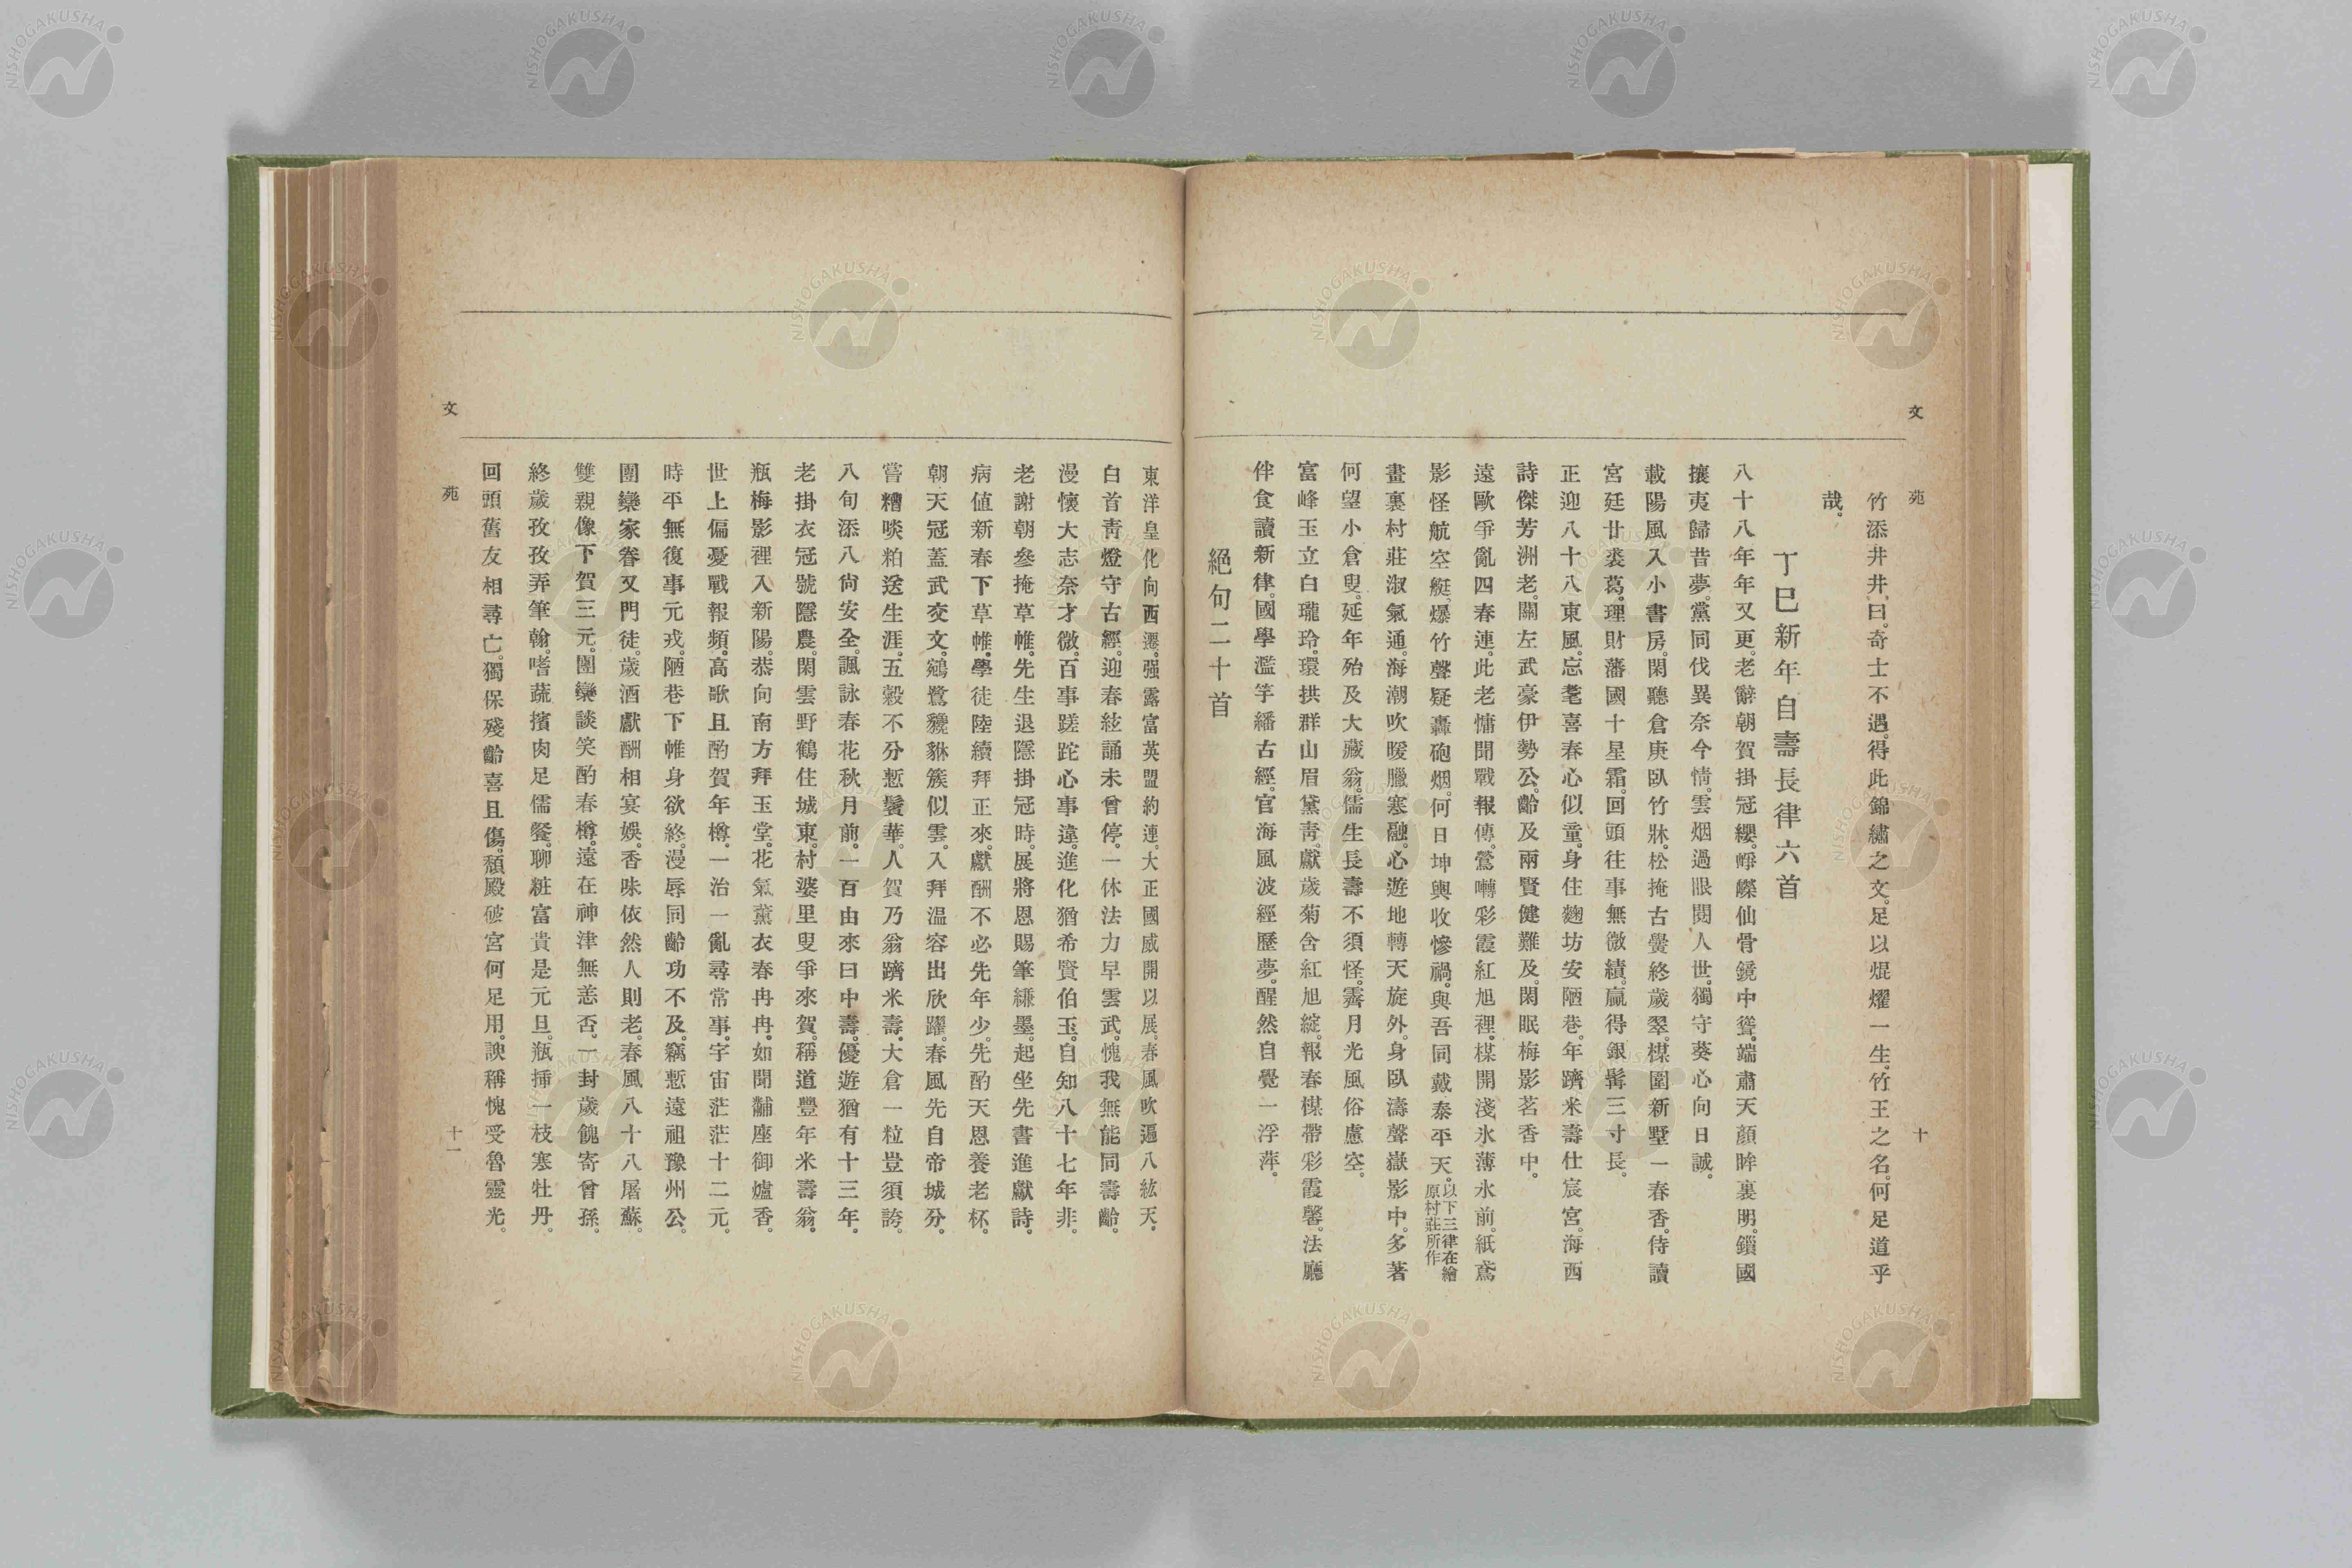 文苑
十
竹添井井曰。奇士不遇。得此錦繡之文。足以焜燿一生。竹王之名。何足道乎
哉。
丁巳新年自壽長律六首
八十八年年又更。老辭朝賀掛冠纓。崢嶸仙骨鏡中聳。端肅天顏眸裏明。鎖國
攘夷歸昔夢。黨同伐異奈今情。雲烟過眼閱人世。獨守葵心向日誠。
載陽風入小書房。閑聽倉庚臥竹牀。松掩古黌終歲翠。楳圍新墅一春香。侍讀
宮廷廿裘葛。理財藩國十星霜。回頭往事無微績。贏得銀髯三寸長。
正迎八十八東風。忘耄喜春心似童。身住麴坊安陋巷。年躋米壽仕宸宮。海西
詩傑芳洲老。關左武豪伊勢公。齡及兩賢健難及。閑眠梅影茗香中。
遠歐爭亂四春連。此老慵聞戰報傳。鶯囀彩霞紅旭裡。楳開淺水薄氷前。紙鳶
影怪航空艇。爆竹聲疑轟砲烟。何日坤輿收慘禍。與吾同戴泰平天。以下三律在繪原村莊所作
畫裏村莊淑氣通。海潮吹暖臘寒融。心遊地轉天旋外。身臥濤聲嶽影中。多著
何望小倉叟。延年殆及大藏翁。儒生長壽不須怪。霽月光風俗慮空。
富峰玉立白瓏玲。環拱群山眉黛靑。獻歲菊舍紅旭綻。報春楳帶彩霞馨。法廳
伴食讀新律。國學濫竽繙古經。官海風波經歷夢。醒然自覺一浮萍。
絕句二十首
東洋皇化向西遷。强露富英盟約連。大正國威開以展。春風吹遍八紘天。
白首靑燈守古經。迎春絃誦未曾停。一休法力早雲武。愧我無能同壽齡。
漫懷大志奈才微。百事蹉跎心事違。進化猶希賢伯玉。自知八十七年非。
老謝朝參掩草帷。先生退隱掛冠時。展將恩賜筆縑墨。起坐先書進獻詩。
病值新春下草帷。學徒陸續拜正來。獻酬不必先年少。先酌天恩養老杯。
朝天冠蓋武交文。鵷鷺貔貅簇似雲。入拜溫容出欣躍。春風先自帝城分。
嘗糟啖粕送生涯。五穀不分慙鬢華。人賀乃翁躋米壽。大倉一粒豈須誇。
八旬添八尙安全。諷詠春花秋月前。一百由來曰中壽。優遊猶有十三年。
老掛衣冠號隱農。閑雲野鶴住城東。村婆里叟爭來賀。稱道豐年米壽翁。
瓶梅影裡入新陽。恭向南方拜玉堂。花氣薰衣春冉冉。如聞黼座御爐香。
世上偏憂戰報頻。高歌且酌賀年樽。一治一亂尋常事。宇宙茫茫十二元。
時平無復事元戎。陋巷下帷身欲終。漫辱同齡功不及。竊慙遠祖豫州公。
團欒家眷又門徒。歲酒獻酬相宴娛。香味依然人則老。春風八十八屠蘇。
雙親像下賀三元。團欒談笑酌春樽。遠在神津無恙否。一封歲餽寄曾孫。
終歲孜孜弄筆翰。嗜蔬擯肉足儒餐。聊粧富貴是元旦。瓶揷一枝寒牡丹。
回頭舊友相尋亡。獨保殘齡喜且傷。頹殿破宮何足用。諛稱愧受魯靈光。
文苑
十一